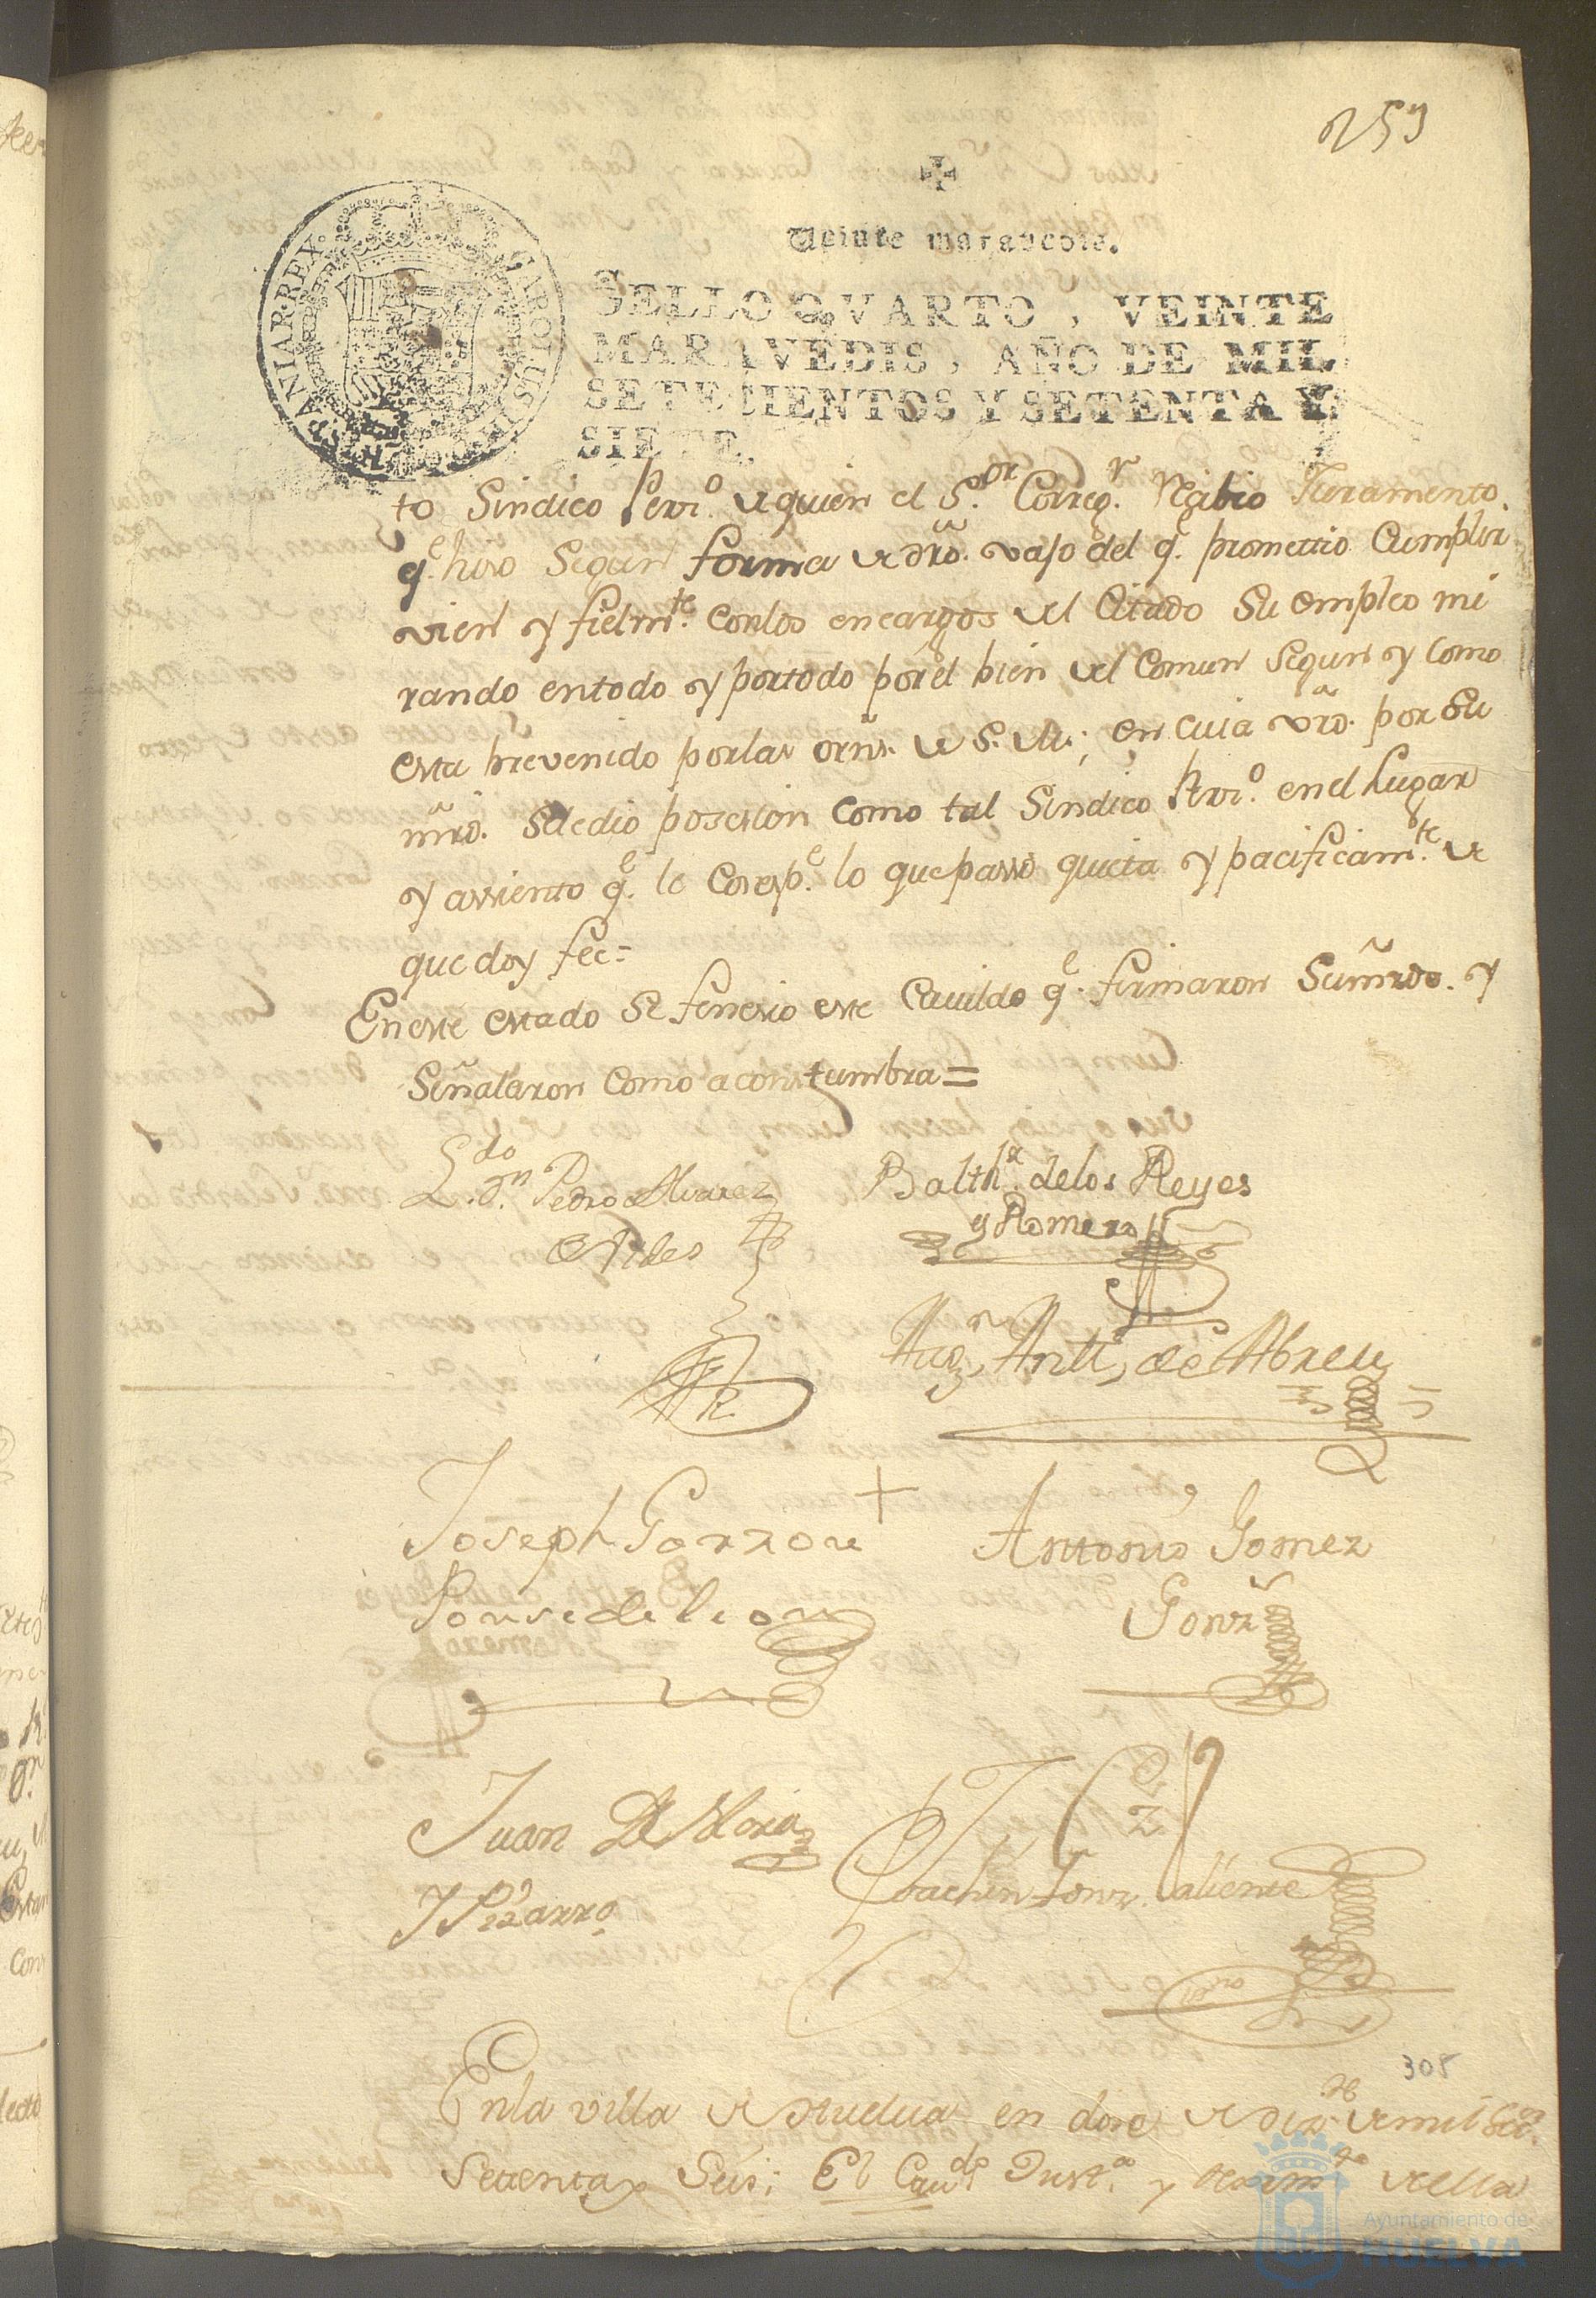 259
Veinte maravedis.
SELLO QVARTO, VEINTE
MARAVEDIS, AÑO DE MIL
SETECIENTOS Y SETENTA Y
SIETE.
CAROLUS III HISPANIAR REX
to Sindico Perro. de quien el S.or Correg.r Rgibio Juramento
q.e hiso Segun forma de dro. vajo del q.e promettio Cumplir
vien y fielm.te con los encargos del Citado Su empleo mi
rando entodo y portodo por el bien del Comun Segun y Como
esta prevenido por las orns. de S. M.; en cuia vrd. por Su
mrd. Sele dio posesion Como tal Sindico Perro. en el Lugar
y assiento q.e le Coresp.e lo que passò quieta y pacificam.te de
que doy fee=
En este estado Se fenesio este Cavildo q.e firmaron Sus mrds. y
Señalaron Como aconstumbra=
L.do D.n Pedro Alvarez
Balth.r de los Reyes
y Romero
Aug.n Antt.o de Abreu
Joseph Garzon
Ponse de leon
Antonio Gomez
Gonz
Juan De Mora
Y Pizarro
Joachin Gonz. Valiente
305
En la villa de Huelva en dose de diz.re de mil Set.s
Settenta y Seis; El Cav.do Just.a y Reximt.o de ella
Ayuntamiento de
HUELVA